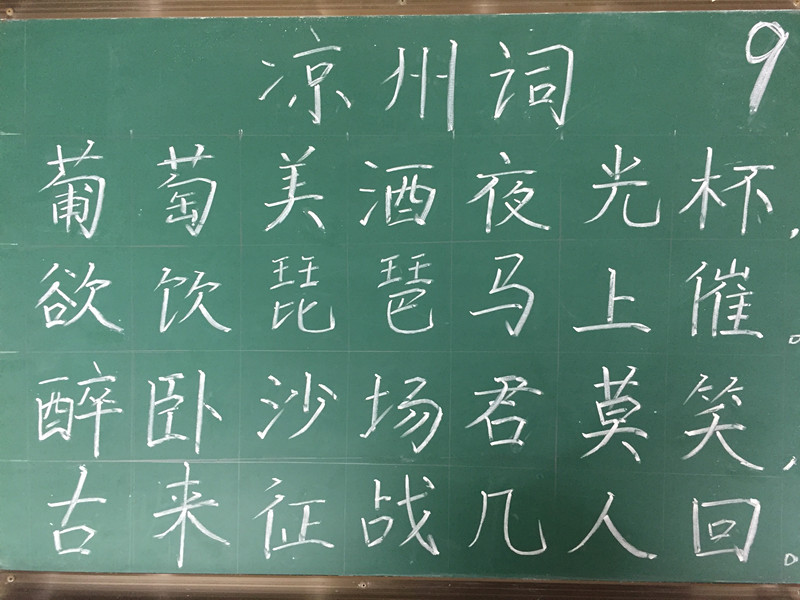 凉州词 9
葡萄美酒夜光杯,
欲饮琵琶马上催。
醉卧沙场君莫笑,
古来征战几人回。